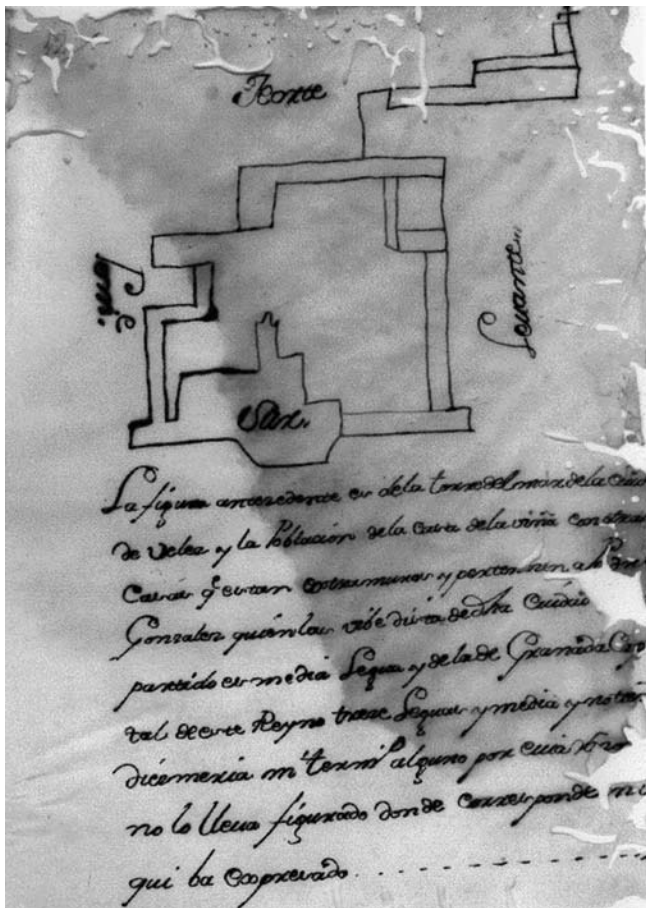 Norte
Leuante.
Sur.
La figura antecedente es de la torre del mar de la Ciu
de Velez y la Poblacion de la Casa de la viña con otras
Casas q.e estan extramuros y pertenecen a
Gonzalez quien las vibe dista de dha Ciudad
partido es media Legua y de la de Granada Cap
tal de este Reyno treze Leguas y media y no tien
dicemeria ni term.o alguno por cuia
no lo lleua figurado donde corresponde ni
qui ba expresado